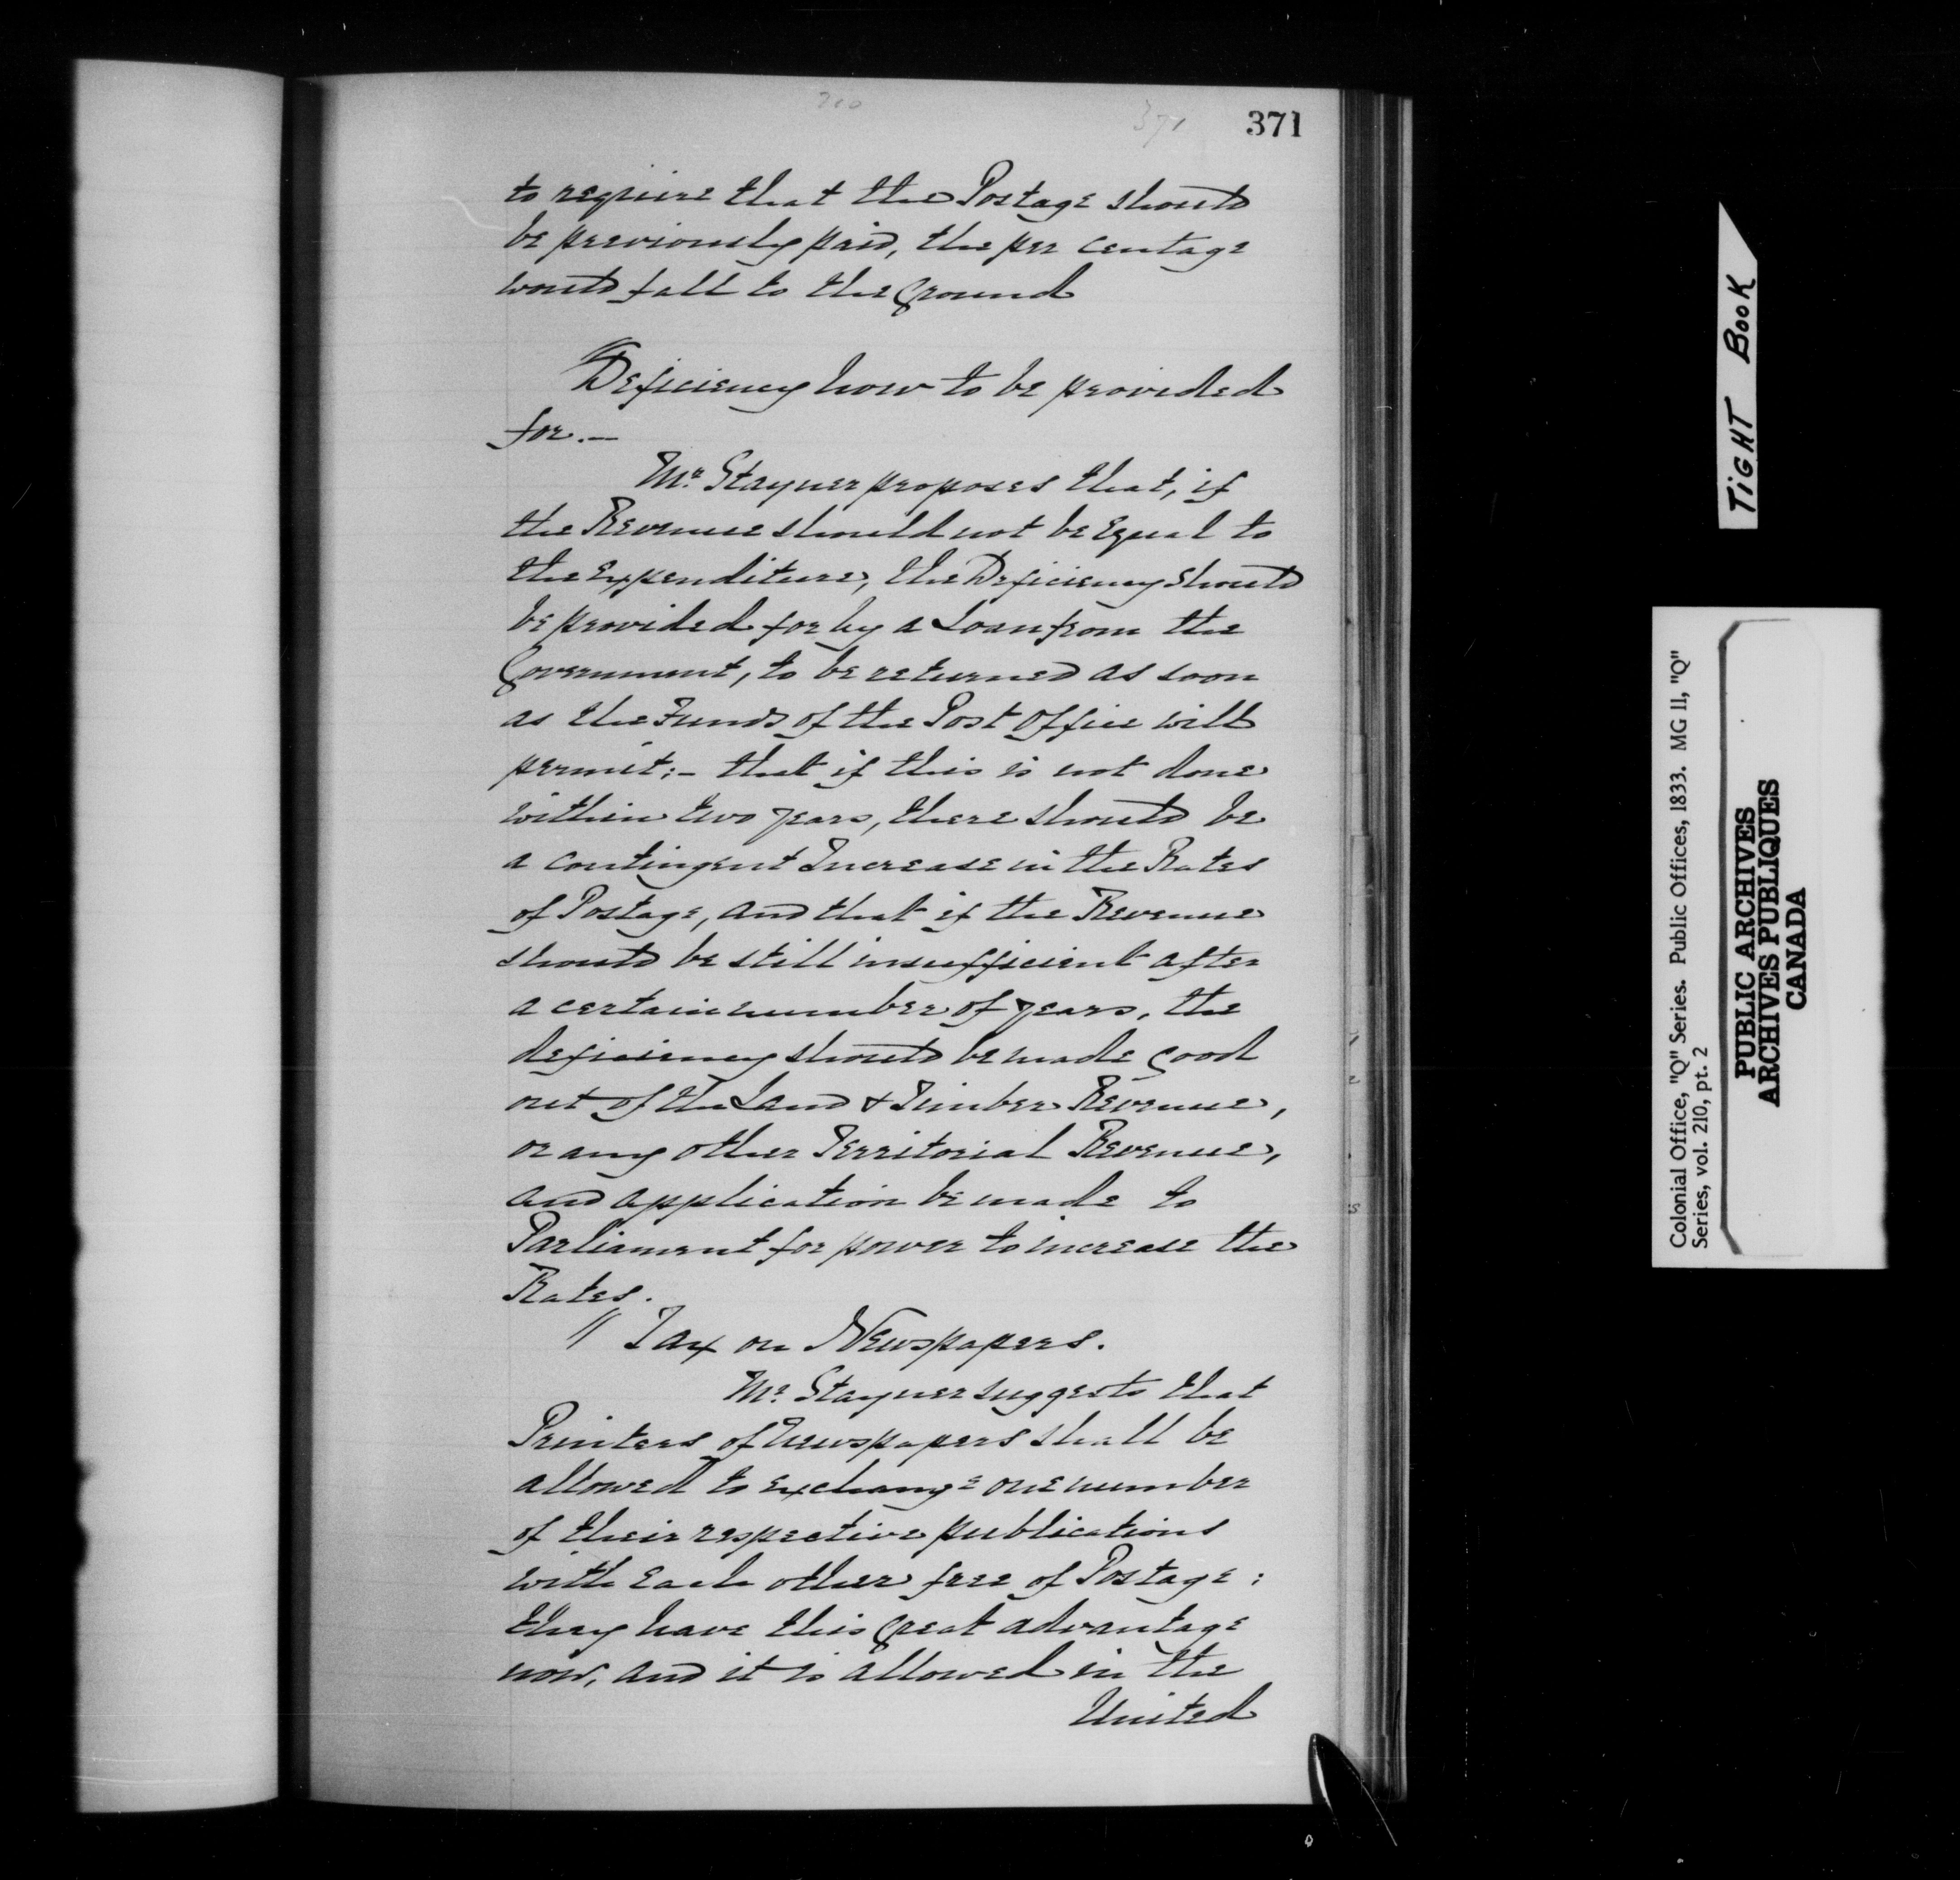 210
371
371
to require that the Postage should
be previously paid, the per centage
would fall to the Ground
"Deficiency how to be provided
for.—
Mr. Stayner proposes that, if
the Revenue should not be Equal to
the Expenditure, the Deficiency should
be provided for by a Loan from the
Government, to be returned as soon
as the Funds of the Post Office will
permit:- that if this is not done
within two years, there should be
a contingent Increase in the Rates
of Postage, and that if the Revenue
should be still insufficient after
a certain number of years, the
deficiency should be made Good
out of the Land & Timber Revenue,
or any other Territorial Revenue,
and application be made to
Parliament for power to increase the
Rates.
" Tax on Newspapers.
Mr. Stayner suggests that
Printers of Newspapers shall be
allowed to exchange one number
of their respective publications
with Each other free of Postage:
they have this Great advantage
now, and it is allowed in the
United
TIGHT BOOK
Colonial Office, "Q" Series. Public Offices, 1833. MG 11, "Q"
Series, vol. 210, pt. 2
PUBLIC ARCHIVES
ARCHIVES PUBLIQUES
CANADA